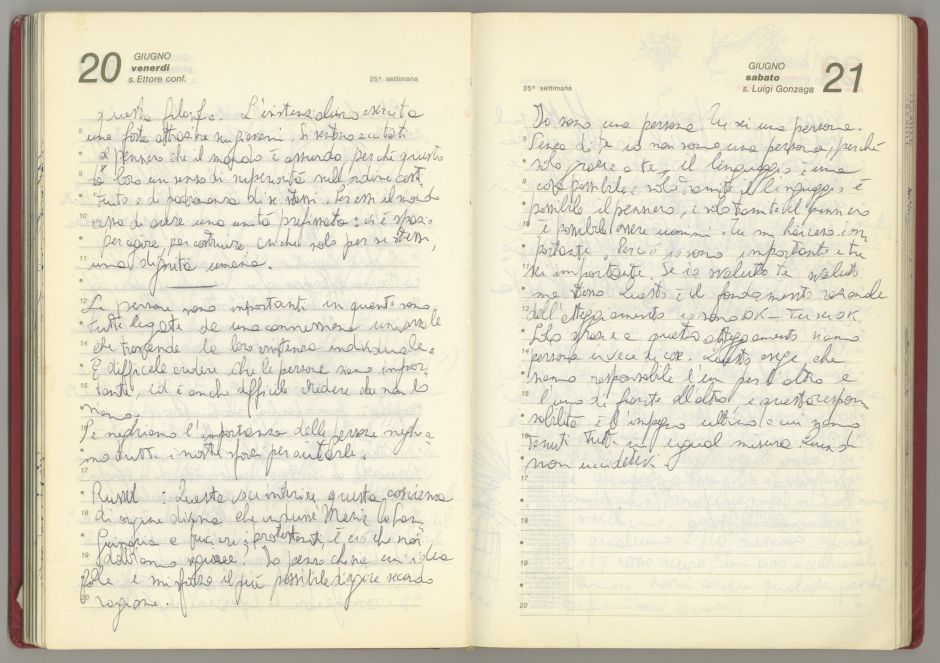 20
GIUGNO
venerdì
s. Ettore conf.
25ª settimana
questa filosofia. L'esistenzialismo esercita
una forte attrazione sui giovani. Si sentono eccitati
al pensiero che il mondo è assurdo, perché questo
dà loro un senso di superiorità sull'ordine costi
tuito e di padronanza di se stessi. Per essi il mondo
cessa di avere una unità prefissata: vi è spazio
per agire, per costruire anche solo per se stessi,
una dignità umana.
Le persone sono importanti in quanto sono
tutte legate da una connessione universale
che trascende la loro esistenza individuale.
È difficile credere che le persone sono impor
tanti, ed è anche difficile credere che non lo
siano.
Se neghiamo l'importanza delle persone neghia
mo tutti i nostri sforzi per aiutarle.
Russel : Questa coscienza
di origine divina che Maria la San
guinaria e i protestanti è ciò che noi
dobbiamo ? Io penso che sia un'idea
folle e mi sforzo il più possibile di agire secondo
ragione.
GIUGNO
sabato
s. Luigi Gonzaga
21
25ª settimana
Io sono una persona. Tu sei una persona.
Senza di te io non sono una persona, perché
solo grazie a te, il linguaggio è una
cosa possibile e solo tramite il linguaggio è
possibile il pensiero, e solo tramite il pensiero
è possibile essere uomini. Tu mi hai reso im
portante. Perciò io sono importante e tu
sei importante. Se io svaluto te svaluto
me stesso. Questo è il fondamento razionale
dell'atteggiamento io sono OK - Tu sei OK.
Solo grazie a questo atteggiamento siamo
persone invece di cose. Questo esige che
siamo responsabili l'un per l'altro e
l'uno di fronte all'altro e questa respon
sabilità è l'impegno ultimo a cui siamo
tenuti tutti in ugual misura
non uccidetevi